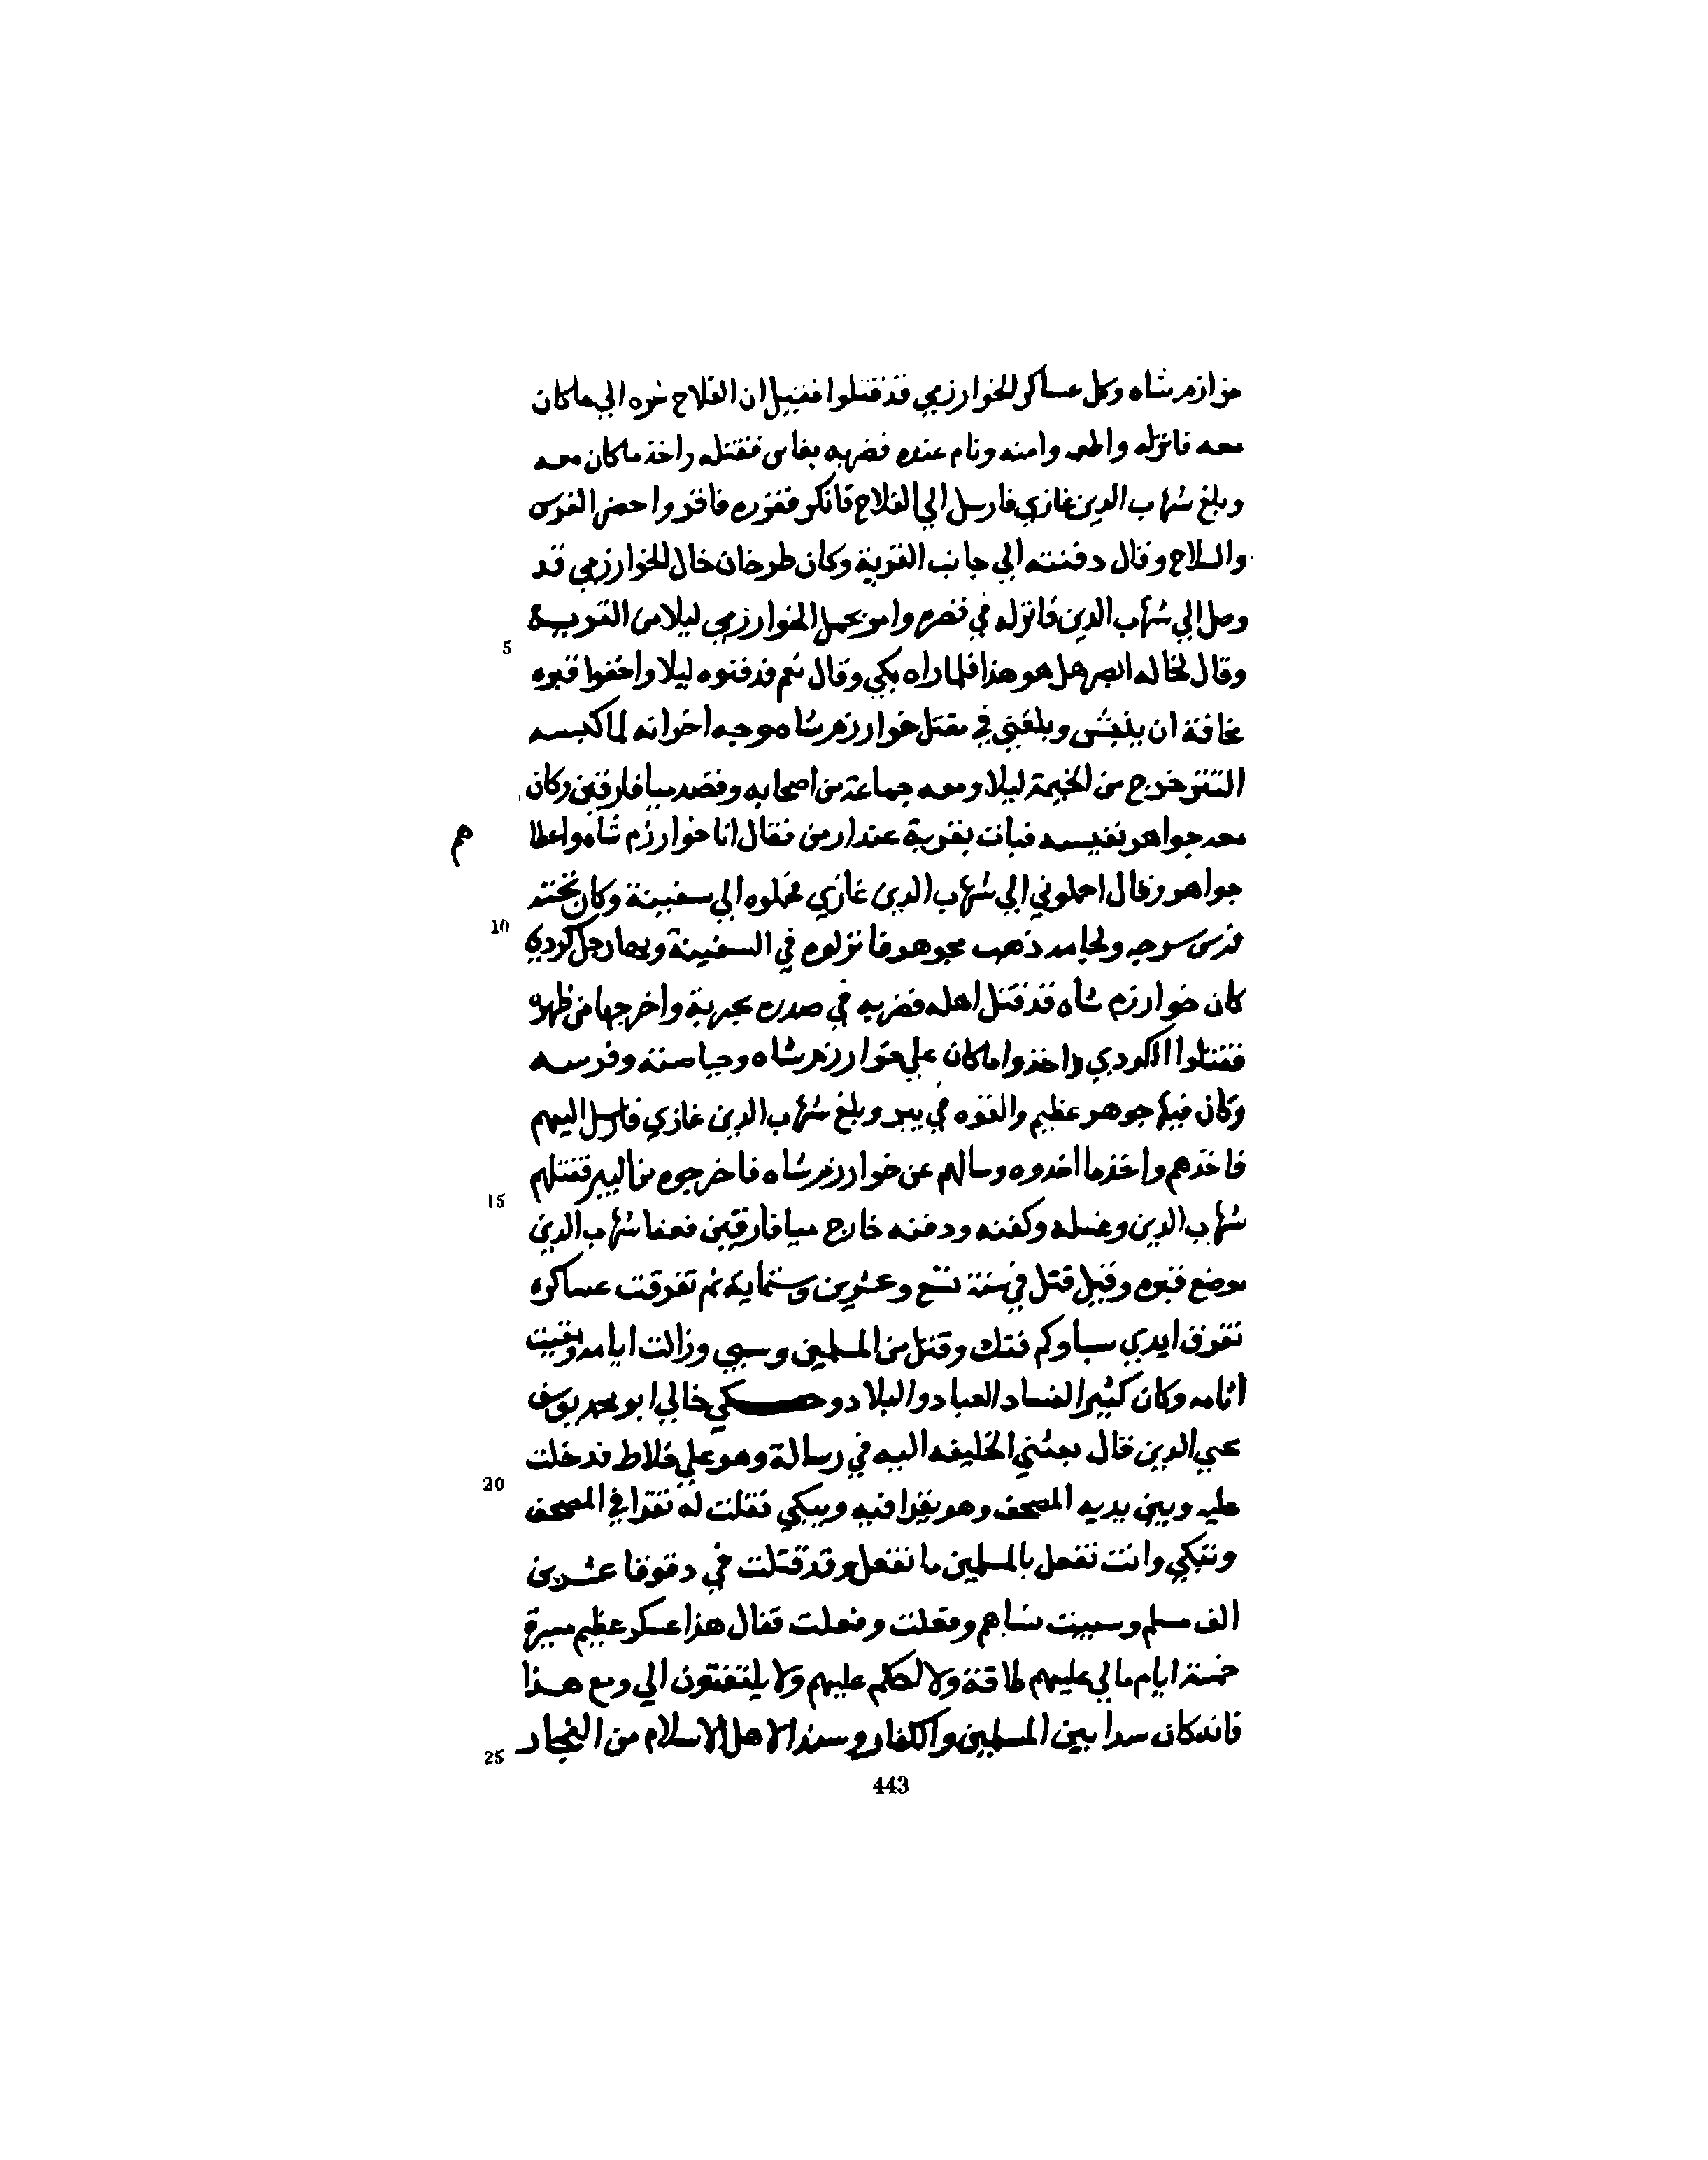 خوارزم شاه وكل عساكر الخوارزمي قد قتلوا فقيل ان الفلاح شره الي ما كان
معه فانزله واطعمه وامنه ونام عنده فضربه بفاس فقتله واخذ ما كان معه
وبلغ شهاب الدين غازي فارسل الي الفلاح فانكر فقرره فاقر واحضر الفرس
والسلاح وقال دفنته الي جانب القرية وكان طرخان خال الخوارزمي قد
وصل الي شهاب الدين فانزله في قصره وامر بحمل الخوارزمي ليلا من القرية
5
وقال لخاله ابصر هل هو هذا فلما راه بكي وقال نعم فدفنوه ليلا واخفوا قبره
مخافة ان ينبش وبلغني في مقتل خوارزم شاه وجه اخر انه لما كبسه
التتر خرج من الخيمة ليلا ومعه جماعة من اصحابه وقصد ميافارقين وكان
معه جواهر نفيسه فبات بقرية عند ارمن فقال انا خوارزم شاه واعطا
هم
جواهر وقال احملوني الي شهاب الدين غازي فحملوه الي سفينة وكان تحته
10
فرس سرجه ولجامه ذهب مجوهر فانزلوه في السفينة وبها رجل كردي
كان خوارزم شاه قد قتل اهله فضربه في صدره بحربة واخرجها من ظهره
فقتلوا الكردي واخذوا ما كان علي خوارزم شاه وحياصته وفرسه
وكان فيها جوهر عظيم والقوه في بير وبلغ شهاب الدين غازي فارسل اليهم
فاخذهم واخذ ما اخذوه وسالهم عن خوارزم شاه فاخرجوه من البير فقتلهم
15
شهاب الدين وغسله وكفنه ودفنه خارج ميافارقين فعفا شهاب الدين
موضع قبره وقيل قتل في سنة تسع وعشرين وستماية ثم تفرقت عساكره
تفرق ايدي سبا وكم فتك وقتل من المسلمين وسبي وزالت ايامه وبقيت
اثامه وكان كثير الفساد العباد والبلاد وحكي خالي ابو محمد يوسف
محيي الدين قال بعثني الخليفه اليه في رسالة وهو علي خلاط فدخلت
20
عليه وبين يديه المصحف وهو يقرا فيه ويبكي فقلت له تقرا في المصحف
وتبكي وانت تفعل بالمسلمين ما تفعل وقد قتلت في دقوقا عشرين
الف مسلم وسبيت نساهم وفعلت وفعلت فقال هذا عسكر عظيم مسيرة
خمسة ايام ما لي عليهم طاقة ولا احكم عليهم ولا يلتفتون الي ومع هذا
فانه كان سدا بين المسلمين والكفار وسندا لاهل الاسلام من الفجار
25
443